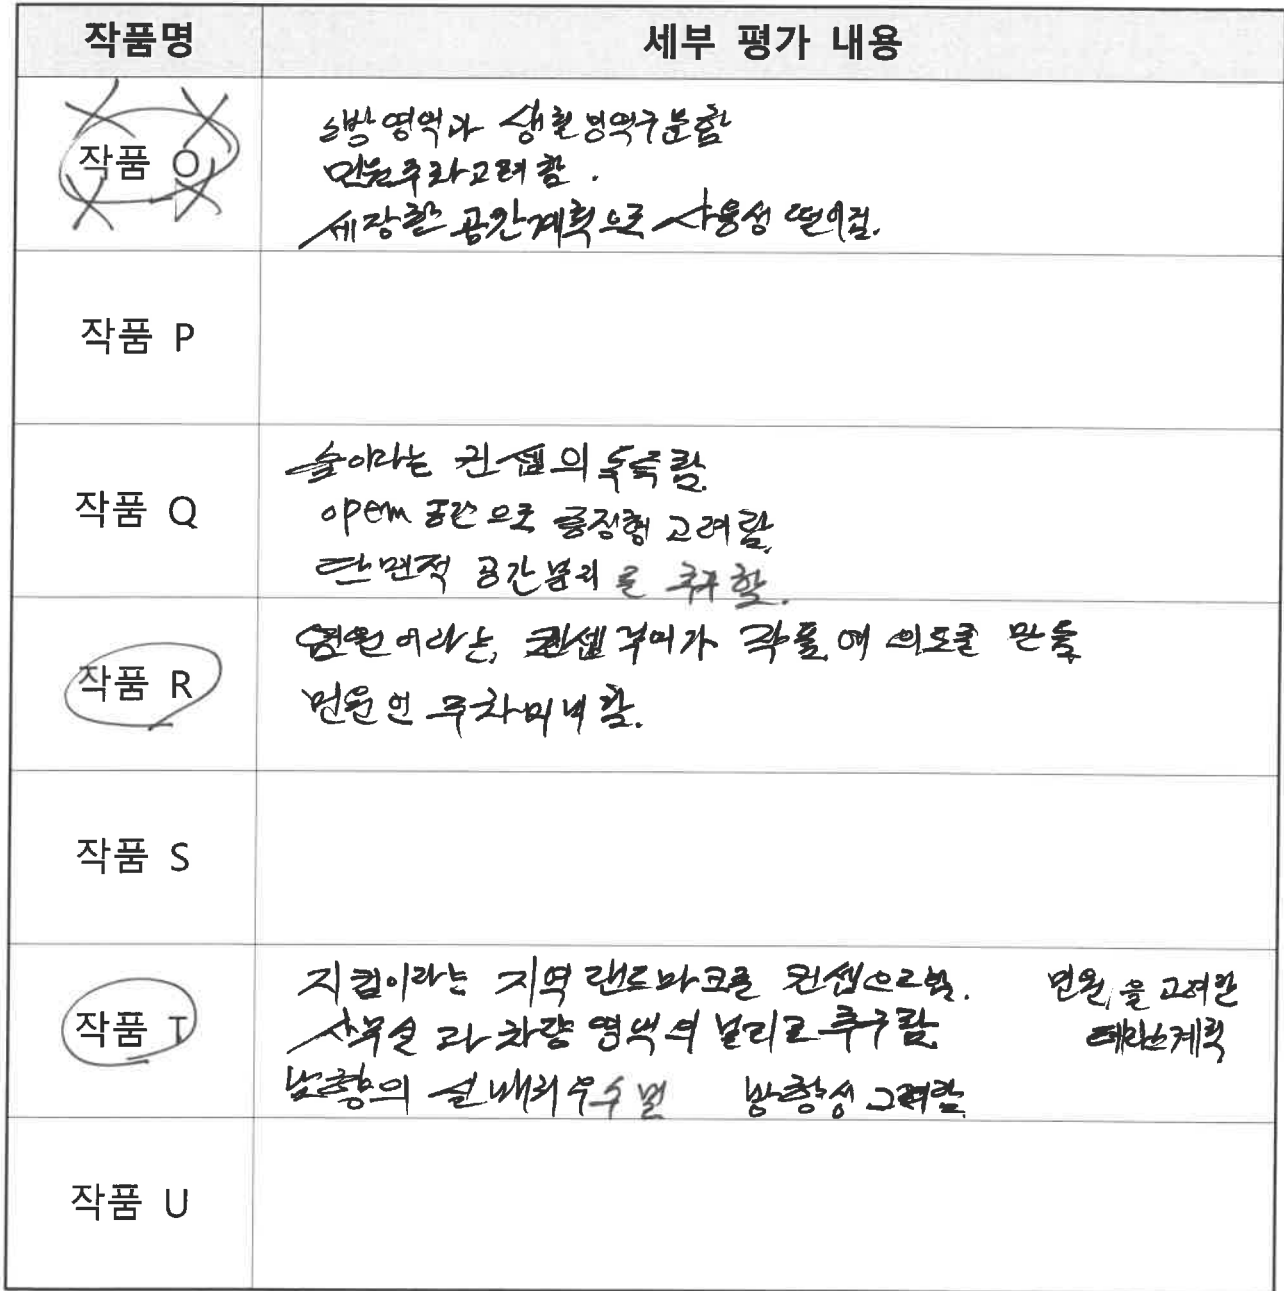 작품명 세부 평가 내용
작품 O
소방영역과 생활영역구분함
민원주차고려함.
세장한 공간계획으로 사용성 떨어짐.
작품 P
작품 Q
숲이라는 컨셉의 독특함.
open 공간으로 확장형 고려함.
단면적 공간분리를 추구함.
작품 R
이라는, 컨셉 부여가 작품에 의도를 만듦
민원인 주차미비함.
작품 S
작품 T
지킴이라는 지역랜드마크를 컨셉으로함. 민원을 고려한
사무실과 차량 영역의 분리로 추구함. 테라스계획
남향의 실배치우수 및 방향성 고려함.
작품 U